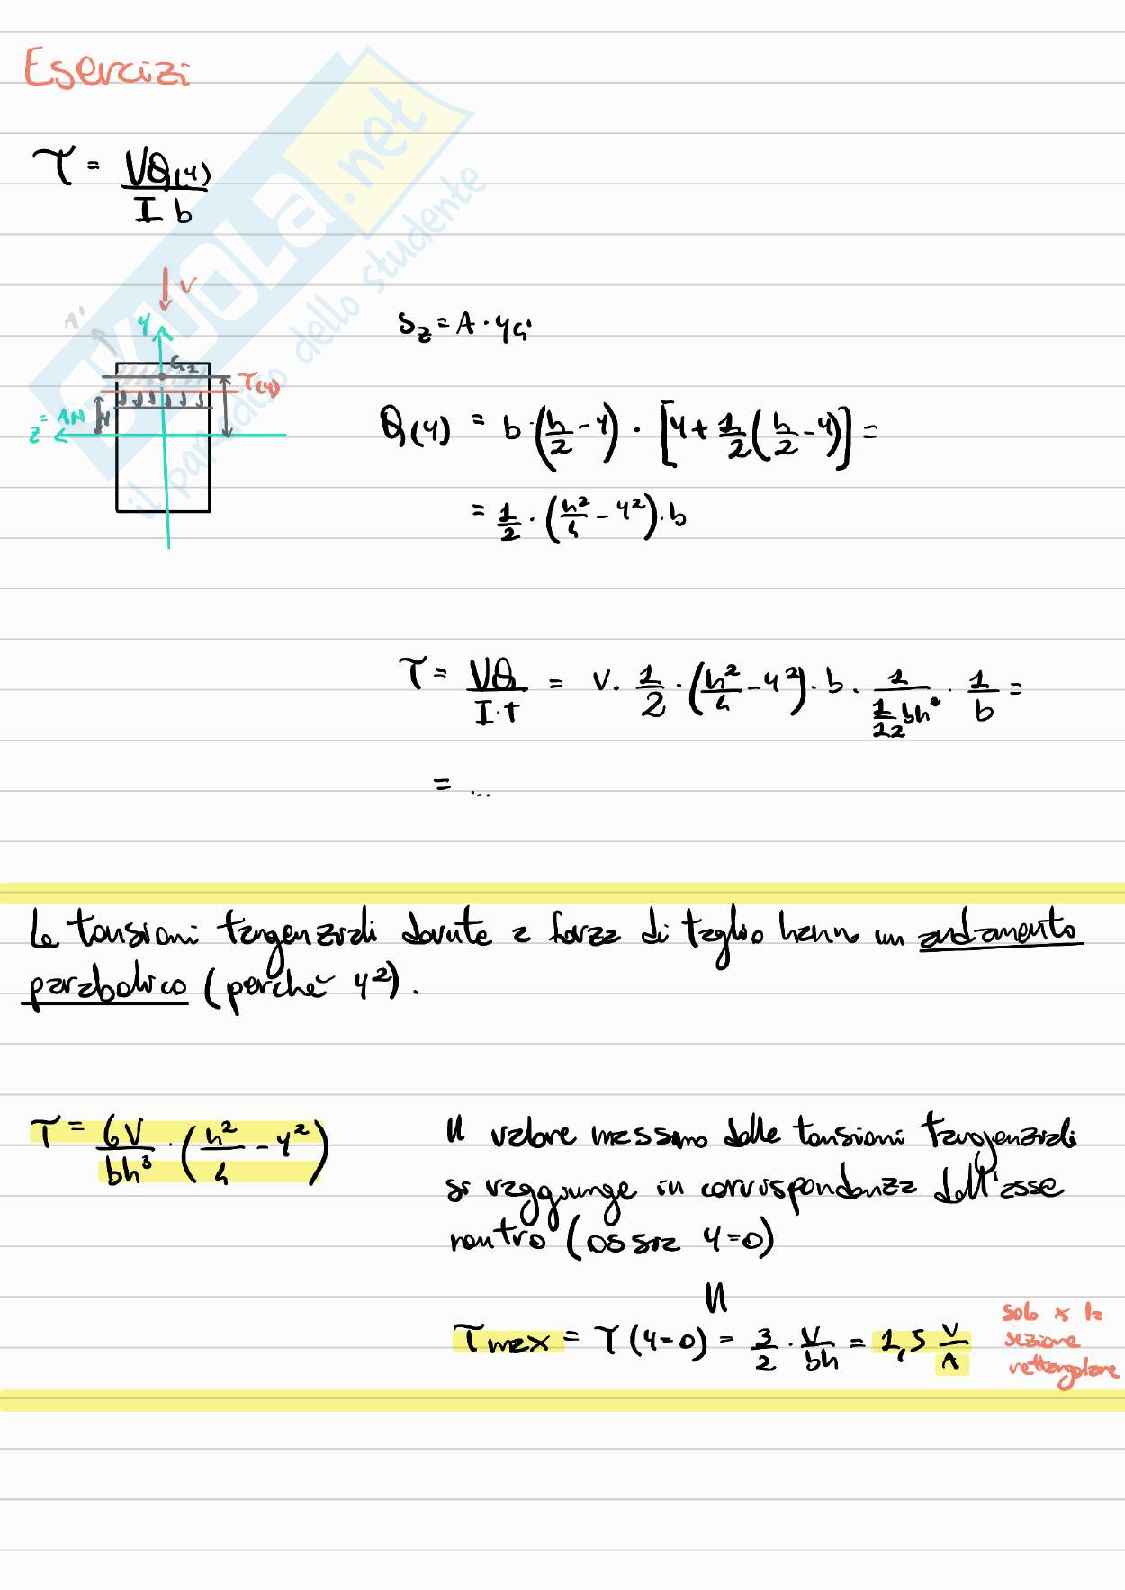 Esercizi
τ = VQ(y) / I b
V
y
G2
τ(y)
z = AN
y
S_z = A · y_G'
Q(y) = b · (h/2 - y) · [y + 1/2 (h/2 - y)] =
= 1/2 · (h²/4 - y²) · b
τ = VQ / I·t = V · 1/2 · (h²/4 - y²) · b · 1 / (1/12 bh³) · 1/b =
= ...
Le tensioni tangenziali dovute a forza di taglio hanno un andamento
parabolico (perché y²).
τ = 6V / bh³ · (h²/4 - y²)
Il valore massimo delle tensioni tangenziali
si raggiunge in corrispondenza dell'asse
neutro (ossia y=0)
τmax = τ(y=0) = 3/2 · V/bh = 1,5 V/A
solo x la
sezione
rettangolare
SKUOLA.net
il paradiso dello studente